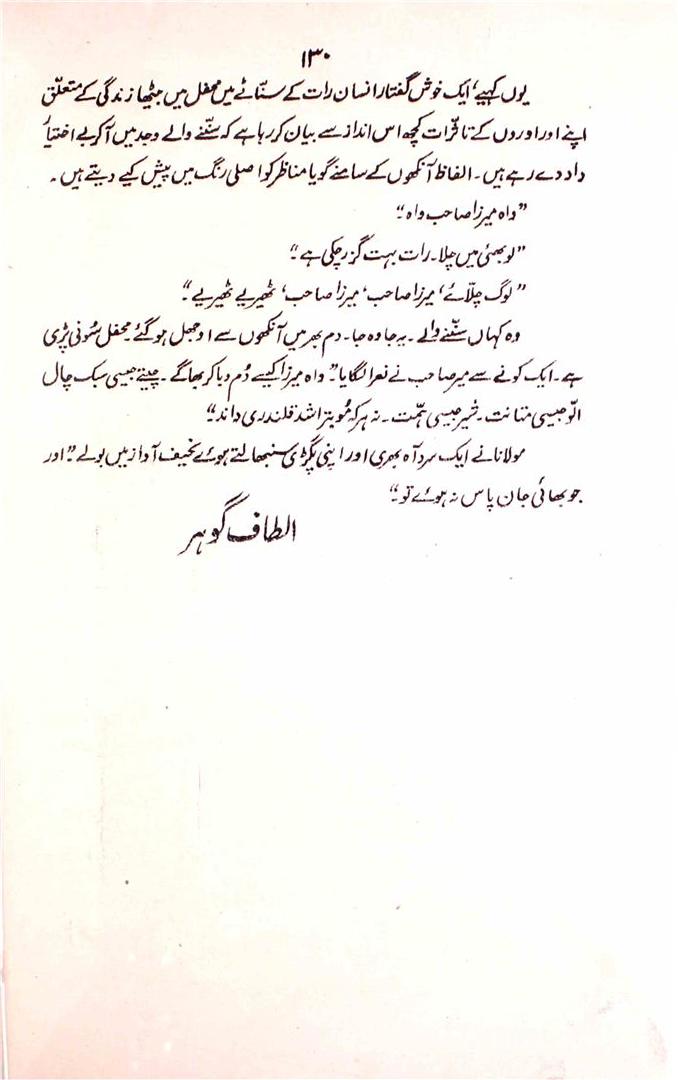 ۱۳۰
یوں کہیے، ایک خوش گفتار انسان رات کے سنّاٹے میں محفل میں بیٹھا زندگی کے متعلق
اپنے اور اوروں کے تاثرات کچھ اس انداز سے بیان کر رہا ہے کہ سننے والے وجد میں آ کر بے اختیار
داد دے رہے ہیں۔ الفاظ آنکھوں کے سامنے گویا مناظر کو اصلی رنگ میں پیش کیے دیتے ہیں۔
”واہ میرزا صاحب واہ۔“
”لو بھئی میں چلا۔ رات بہت گزر چکی ہے۔“
”لوگ چلّائے، میرزا صاحب، میرزا صاحب، ٹھیریے ٹھیریے۔“
وہ کہاں سننے والے۔ یہ جا وہ جا۔ دم بھر میں آنکھوں سے اوجھل ہو گئے۔ محفل سُونی پڑی
ہے۔ ایک کونے سے میر صاحب نے نعرا لگایا۔ ”واہ میرزا کیسے دُم دبا کر بھاگے۔ چیتے جیسی سبک چال
الّو جیسی متانت۔ خچر جیسی ہمّت۔ نہ ہر کہ مُو بتراشد قلندری داند۔“
مولانا نے ایک سرد آہ بھری اور اپنی پگڑی سنبھالتے ہوئے نخیف آواز میں بولے۔ ”اور
جو بھائی جان پاس نہ ہوئے تو۔“
الطاف گوہر